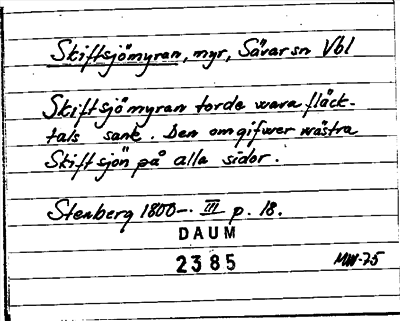 Skiftsjömyran, myr, Sävar sn Vbl
Skiftsjömyran torde wara fläck-
tals sank. Den omgifwer wästra
Skiftsjön på alla sidor.
Stenberg 1800-. III p. 18.
DAUM
2385
MW-75